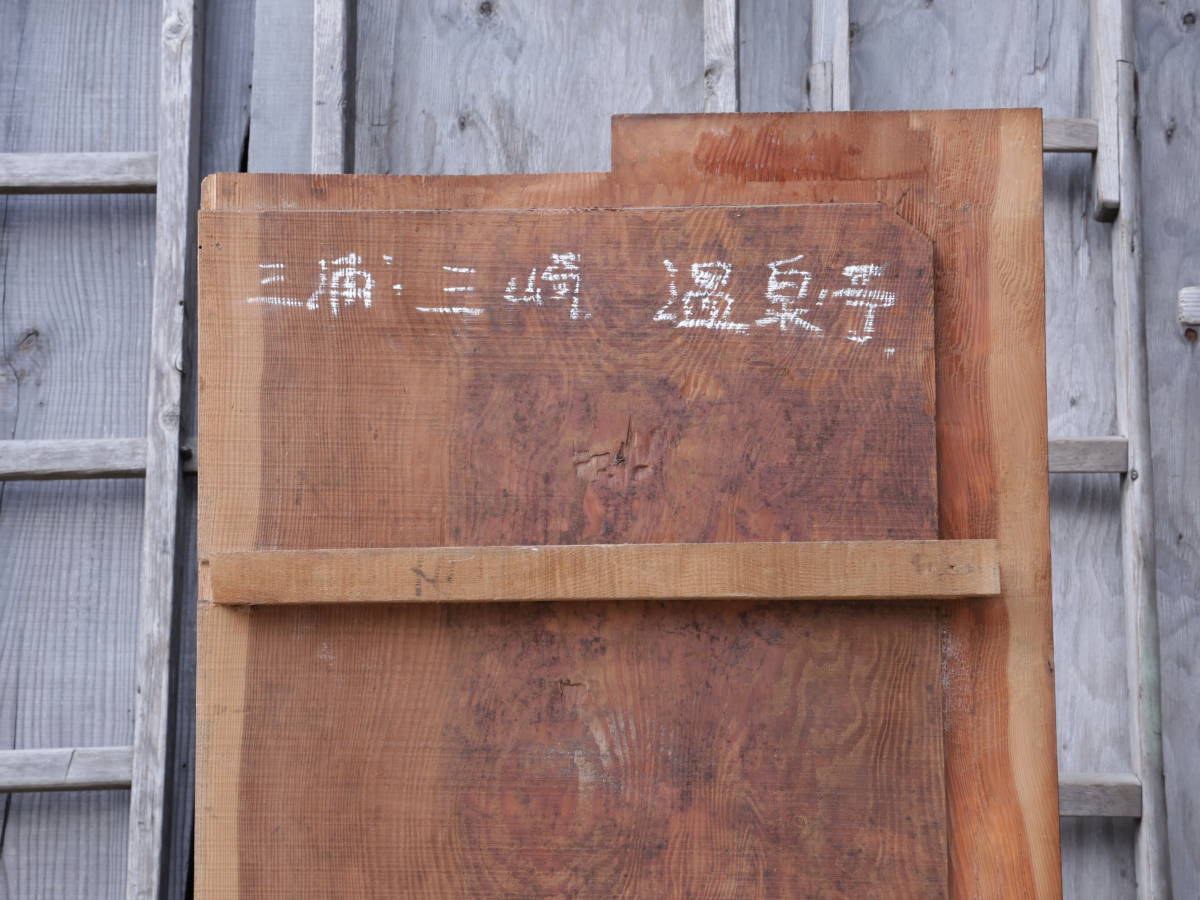 三浦・三崎 温泉寺